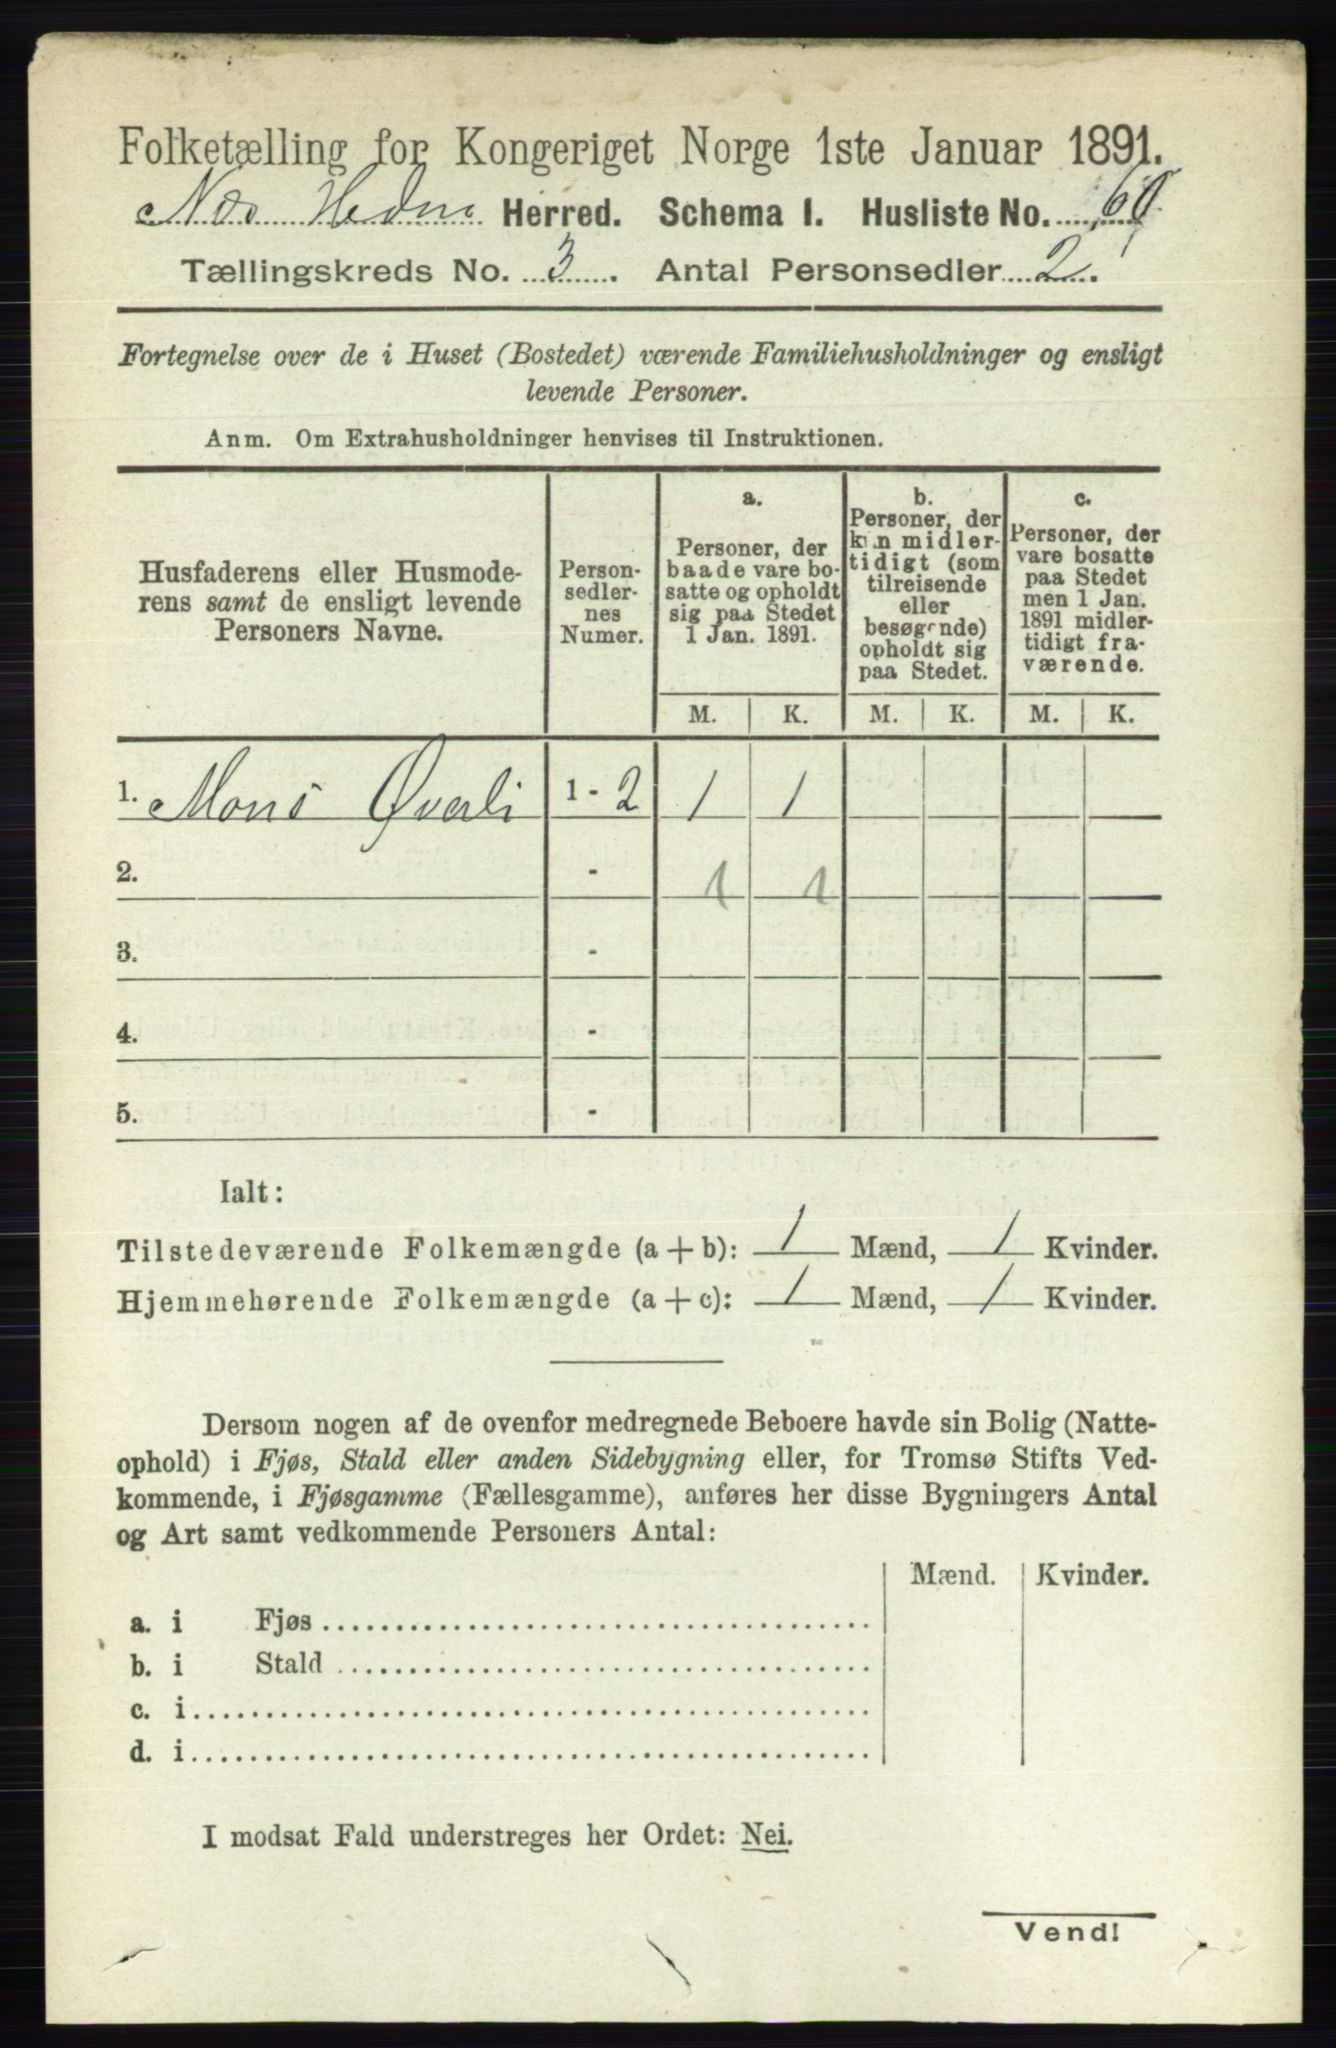 Folketælling for Kongeriget Norge 1ste Januar 1891.
Næs Hedm Herred. Schema 1. Husliste No. 60
Tællingskreds No. 3. Antal Personsedler 2.
Fortegnelse over de i Huset (Bostedet) værende Familiehusholdninger og ensligt
levende Personer.
Anm. Om Extrahusholdninger henvises til Instruktionen.
Husfaderens eller Husmode-
rens samt de ensligt levende
Personers Navne.
Person-
sedler-
nes
Numer.
a.
Personer, der
baade vare bo-
satte og opholdt
sig paa Stedet
1 Jan. 1891.
b.
Personer, der
kun midler-
tidigt (som
tilreisende
eller
besøgende)
opholdt sig
paa Stedet.
c.
Personer, der
vare bosatte
paa Stedet
men 1 Jan.
1891 midler-
tidigt fra-
værende.
M. K. M. K. M. K.
1. Mons Øverli 1 - 2 1 1
2. - 1 1
3. -
4. -
5. -
Ialt:
Tilstedeværende Folkemængde (a + b): 1 Mænd, 1 Kvinder.
Hjemmehørende Folkemængde (a + c): 1 Mænd, 1 Kvinder.
Dersom nogen af de ovenfor medregnede Beboere havde sin Bolig (Natte-
ophold) i Fjøs, Stald eller anden Sidebygning eller, for Tromsø Stifts Ved-
kommende, i Fjøsgamme (Fællesgamme), anføres her disse Bygningers Antal
og Art samt vedkommende Personers Antal:
Mænd. Kvinder.
a. i Fjøs
b. i Stald
c. i
d. i
I modsat Fald understreges her Ordet: Nei.
Vend!